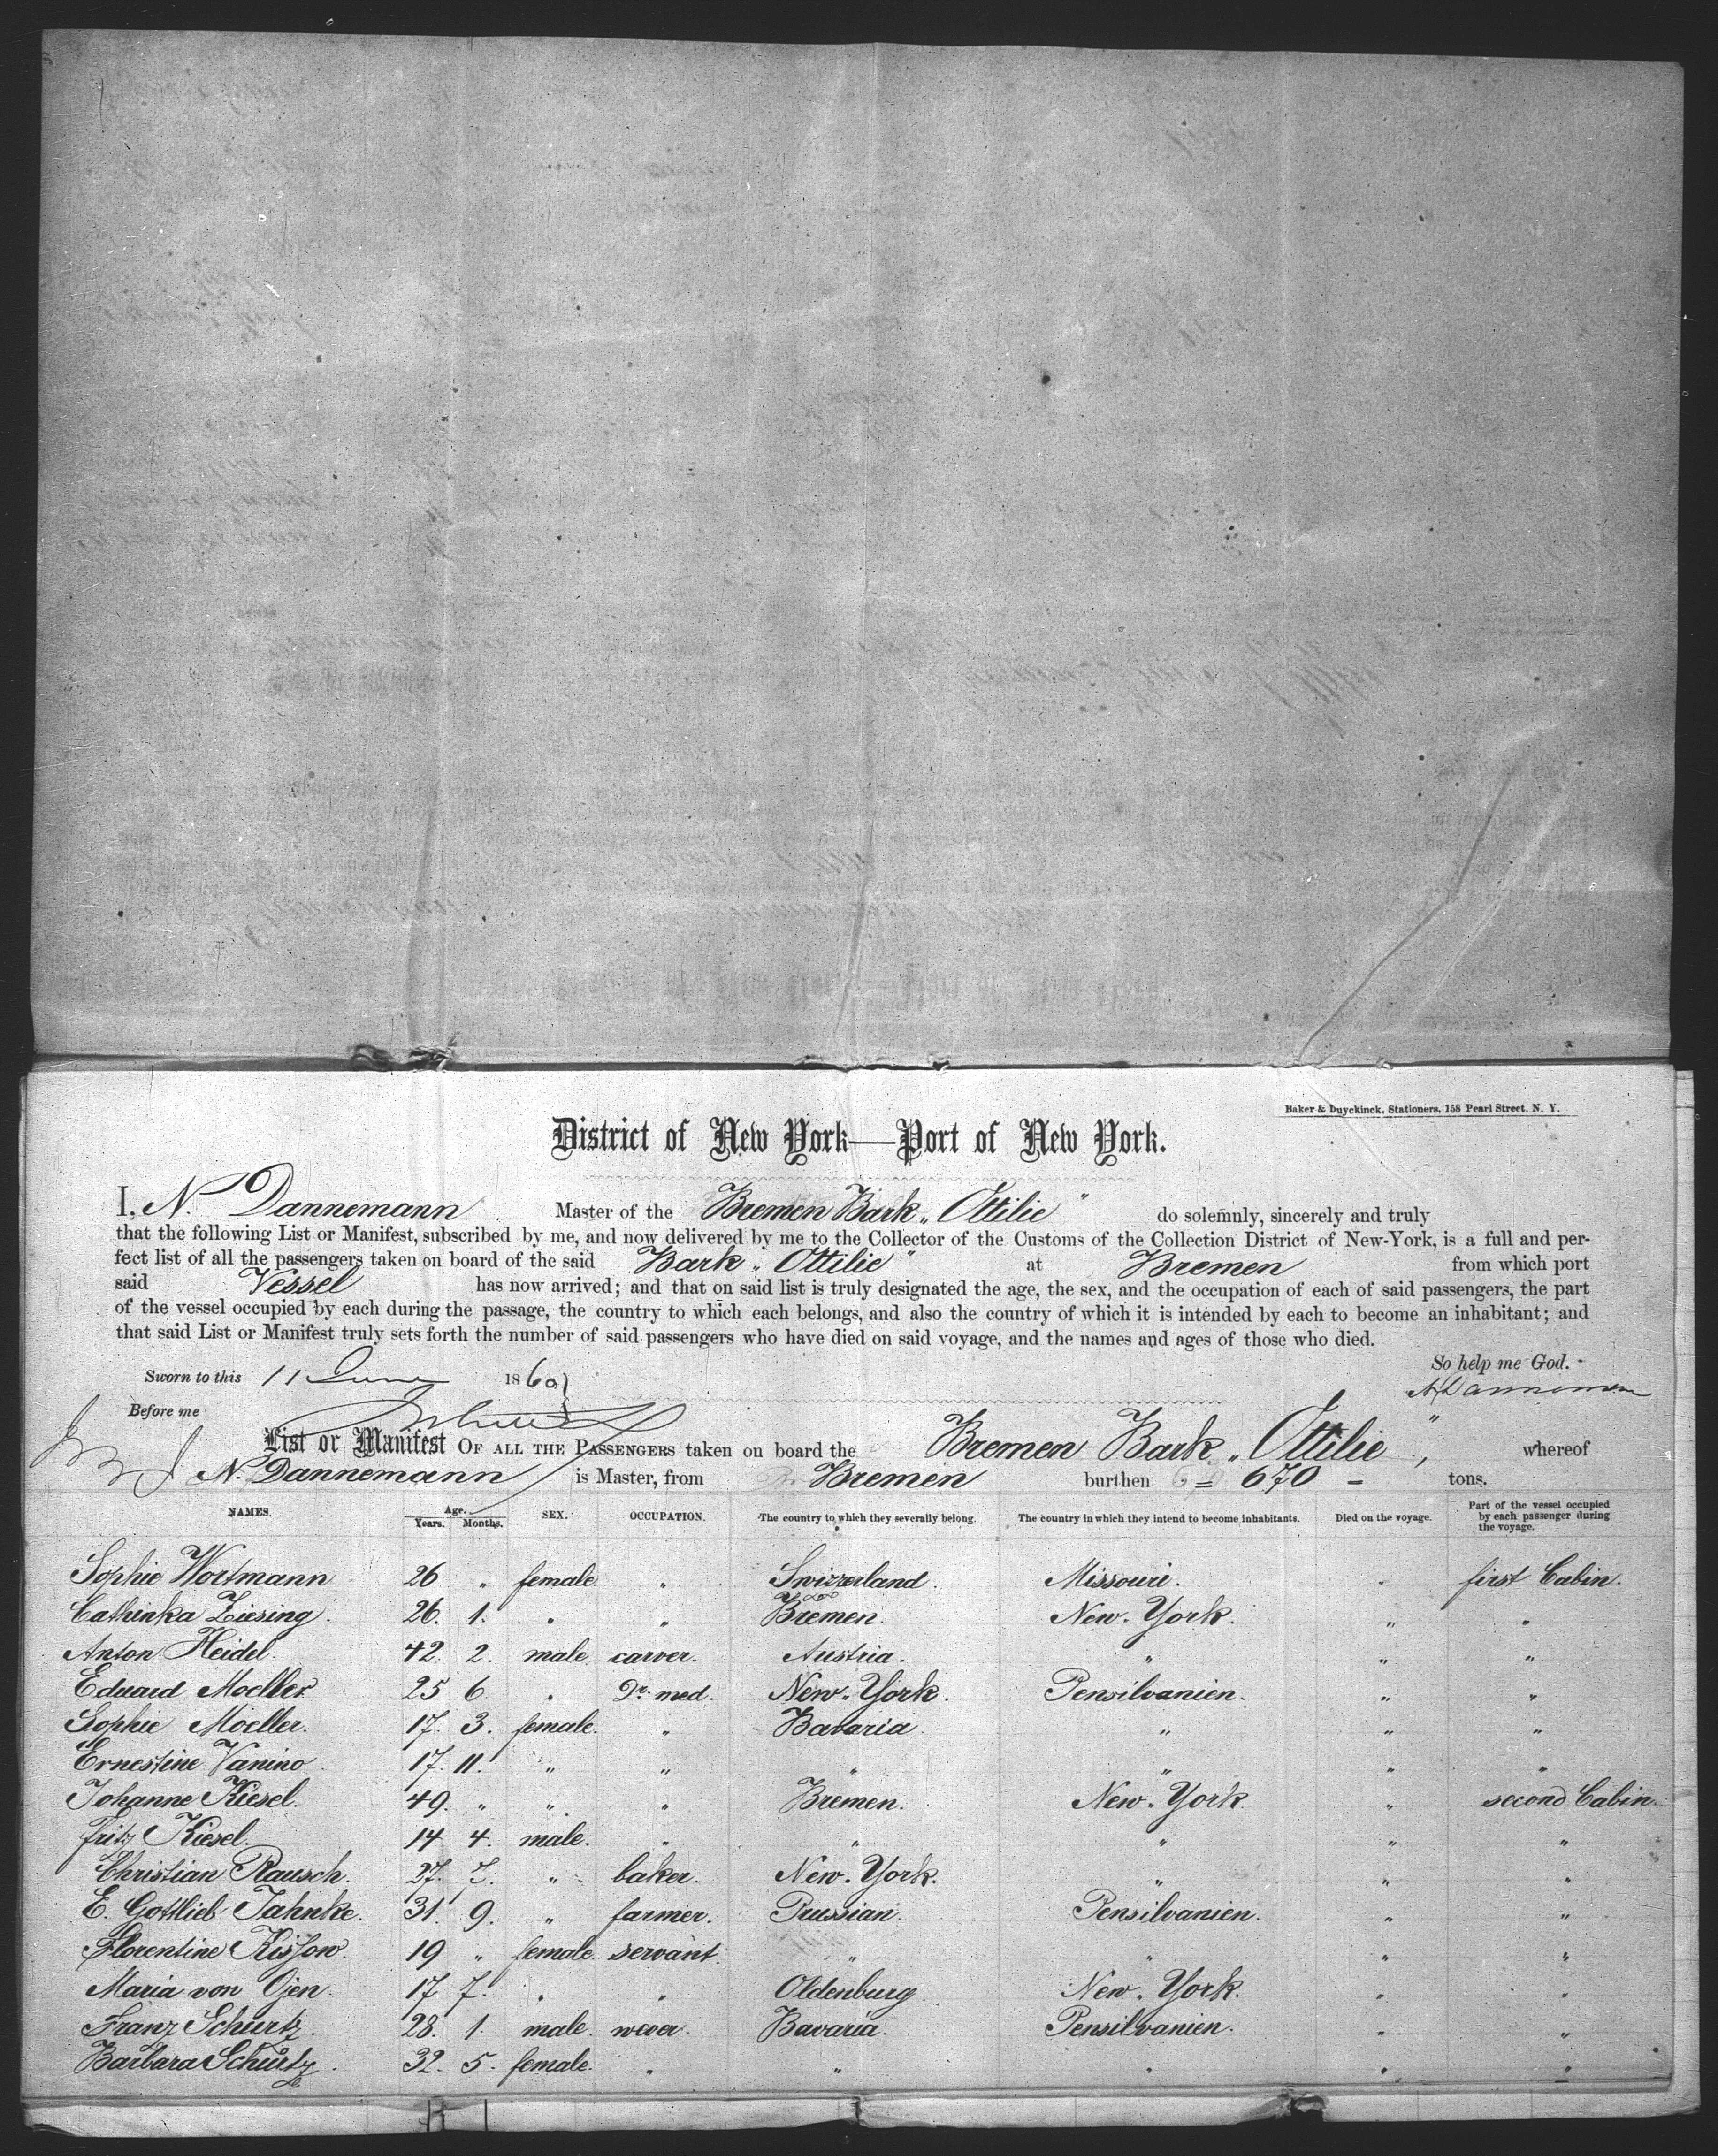 Baker & Duyckinck, Stationers, 158 Pearl Street, N. Y.
District of New York—Port of New York.
I, N. Dannemann Master of the Bremen Bark „Ottilie" do solemnly, sincerely and truly
that the following List or Manifest, subscribed by me, and now delivered by me to the Collector of the Customs of the Collection District of New-York, is a full and per-
fect list of all the passengers taken on board of the said Bark „Ottilie" at Bremen from which port
said Vessel has now arrived; and that on said list is truly designated the age, the sex, and the occupation of each of said passengers, the part
of the vessel occupied by each during the passage, the country to which each belongs, and also the country of which it is intended by each to become an inhabitant; and
that said List or Manifest truly sets forth the number of said passengers who have died on said voyage, and the names and ages of those who died.
So help me God.
Sworn to this 11 June 1860 N Dannemann
Before me
List or Manifest OF ALL THE PASSENGERS taken on board the Bremen Bark „Ottilie", whereof
N. Dannemann is Master, from Bremen burthen 670 tons.
NAMES. Age. Years. Months. SEX. OCCUPATION. The country to which they severally belong. The country in which they intend to become inhabitants. Died on the voyage. Part of the vessel occupied by each passenger during the voyage.
Sophie Wortmann 26 „ female „ Swizzerland. Missouri. „ first Cabin.
Cathinka Ziesing. 26. 1. „ „ Bremen. New-York. „ „
Anton Heidel. 42. 2. male carver. Austria. „ „ „
Eduard Moeller 25 6 „ Dr. med. New-York. Pensilvanien. „ „
Sophie Moeller. 17. 3. female. „ Bavaria „ „ „
Ernestine Vanino. 17. 11. „ „ „ „ „ „
Johanne Kiesel. 49. „ „ „ Bremen. New-York „ second Cabin.
Fritz Kiesel. 14 4. male. „ „ „ „ „
Christian Rausch. 27. 3. „ baker. New-York. „ „ „
E. Gottlieb Jahnke. 31. 9. „ farmer. Prussian. Pensilvanien. „ „
Florentine Kissow. 19 „ female. servant. „ „ „ „
Maria von Ojen. 17 7. „ „ Oldenburg New-York. „ „
Franz Schurtz. 28. 1. male. wever. Bavaria. Pensilvanien. „ „
Barbara Schurtz. 32. 5. female. „ „ „ „ „